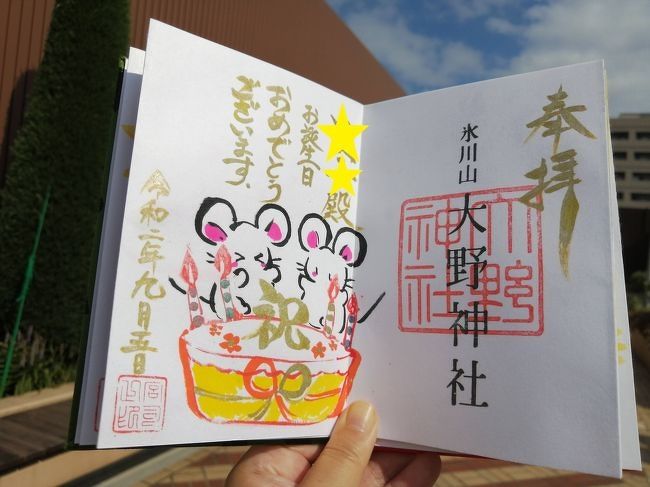 奉拝
氷川山 大野神社
大野
神社
殿
お誕生日
おめでとう
ございます、
祝
令和二年九月五日